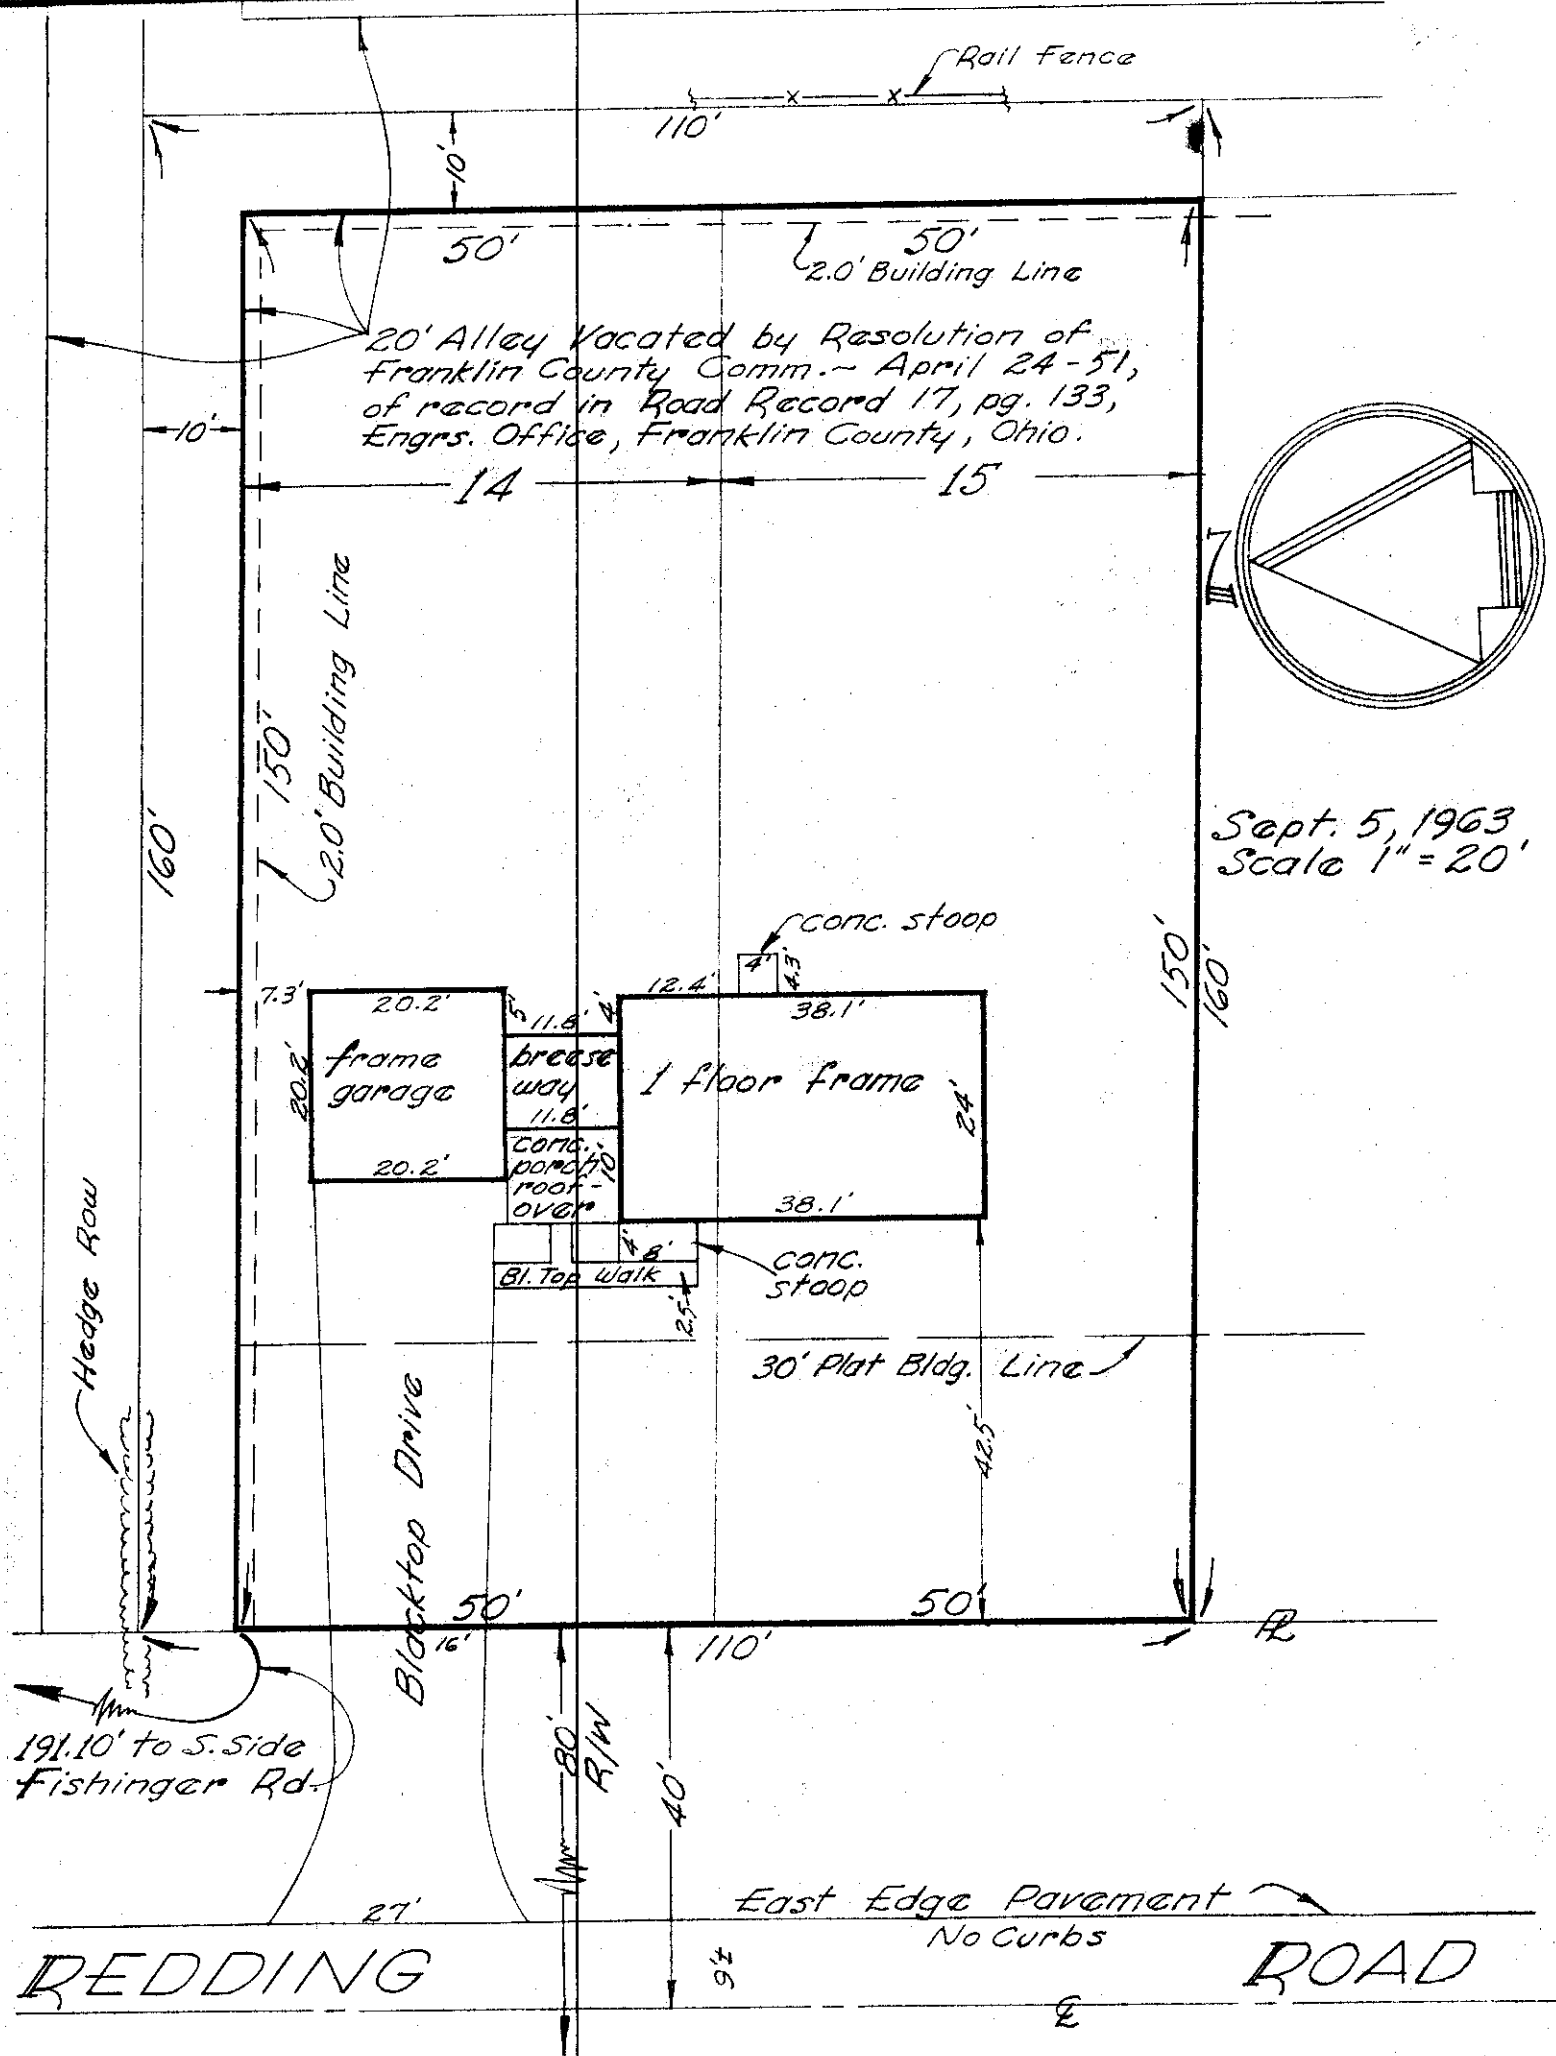 Rail Fence
110'
10'
50' 50'
2.0' Building Line
20' Alley Vacated by Resolution of
Franklin County Comm.~ April 24-51,
of record in Road Record 17, pg. 133,
Engrs. Office, Franklin County, Ohio.
10'
14 15
2.0' Building Line
150'
160'
Sept. 5, 1963
Scale 1" = 20'
150'
160'
conc. stoop
4' 4.3'
7.3' 20.2' 5' 11.8' 4' 12.4' 38.1'
20.2'
frame
garage
20.2'
breese
way
11.8'
conc.
porch
roof-
over
10'
1 floor frame
24'
38.1'
4' 8'
Bl. Top Walk
2.5'
conc.
stoop
30' Plat Bldg. Line
42.5'
Hedge Row
Blacktop Drive
50' 50'
16' 110'
PL
191.10' to S. Side
Fishinger Rd.
80'
R/W
40'
27'
East Edge Pavement
No Curbs
9'±
REDDING ROAD